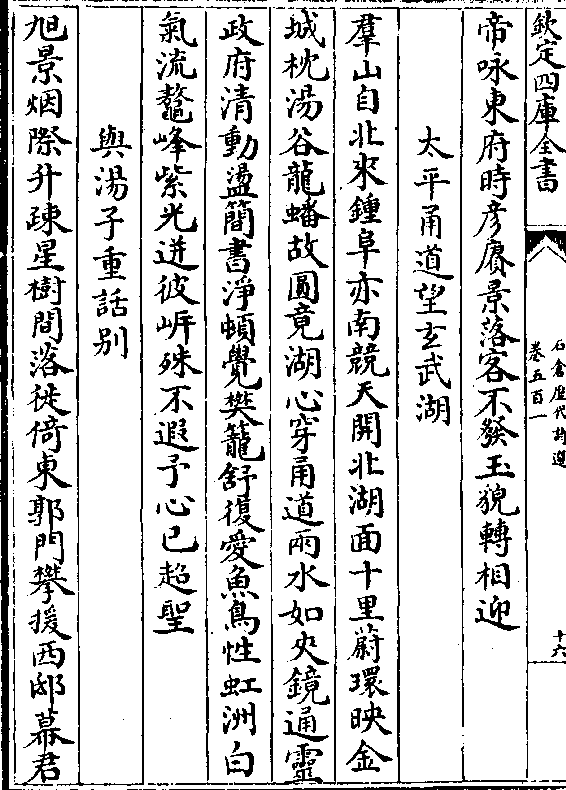 欽定四庫全書
石倉歷代詩選
卷五百一
十六
帝咏東府時彦賡景落客不發玉貌轉相迎
太平甬道望玄武湖
羣山自北來鍾阜亦南競天開北湖面十里蔚環映金
城枕湯谷龍蟠故圓竟湖心穿甬道兩水如夾鏡通靈
政府清動盪簡書淨頓覺樊籠舒復愛魚鳥性虹洲白
氣流鼇峰紫光迸彼㟁殊不遐予心已超聖
與湯子重話别
旭景烟際升疎星樹間落徙倚東郭門攀援西邸幕君